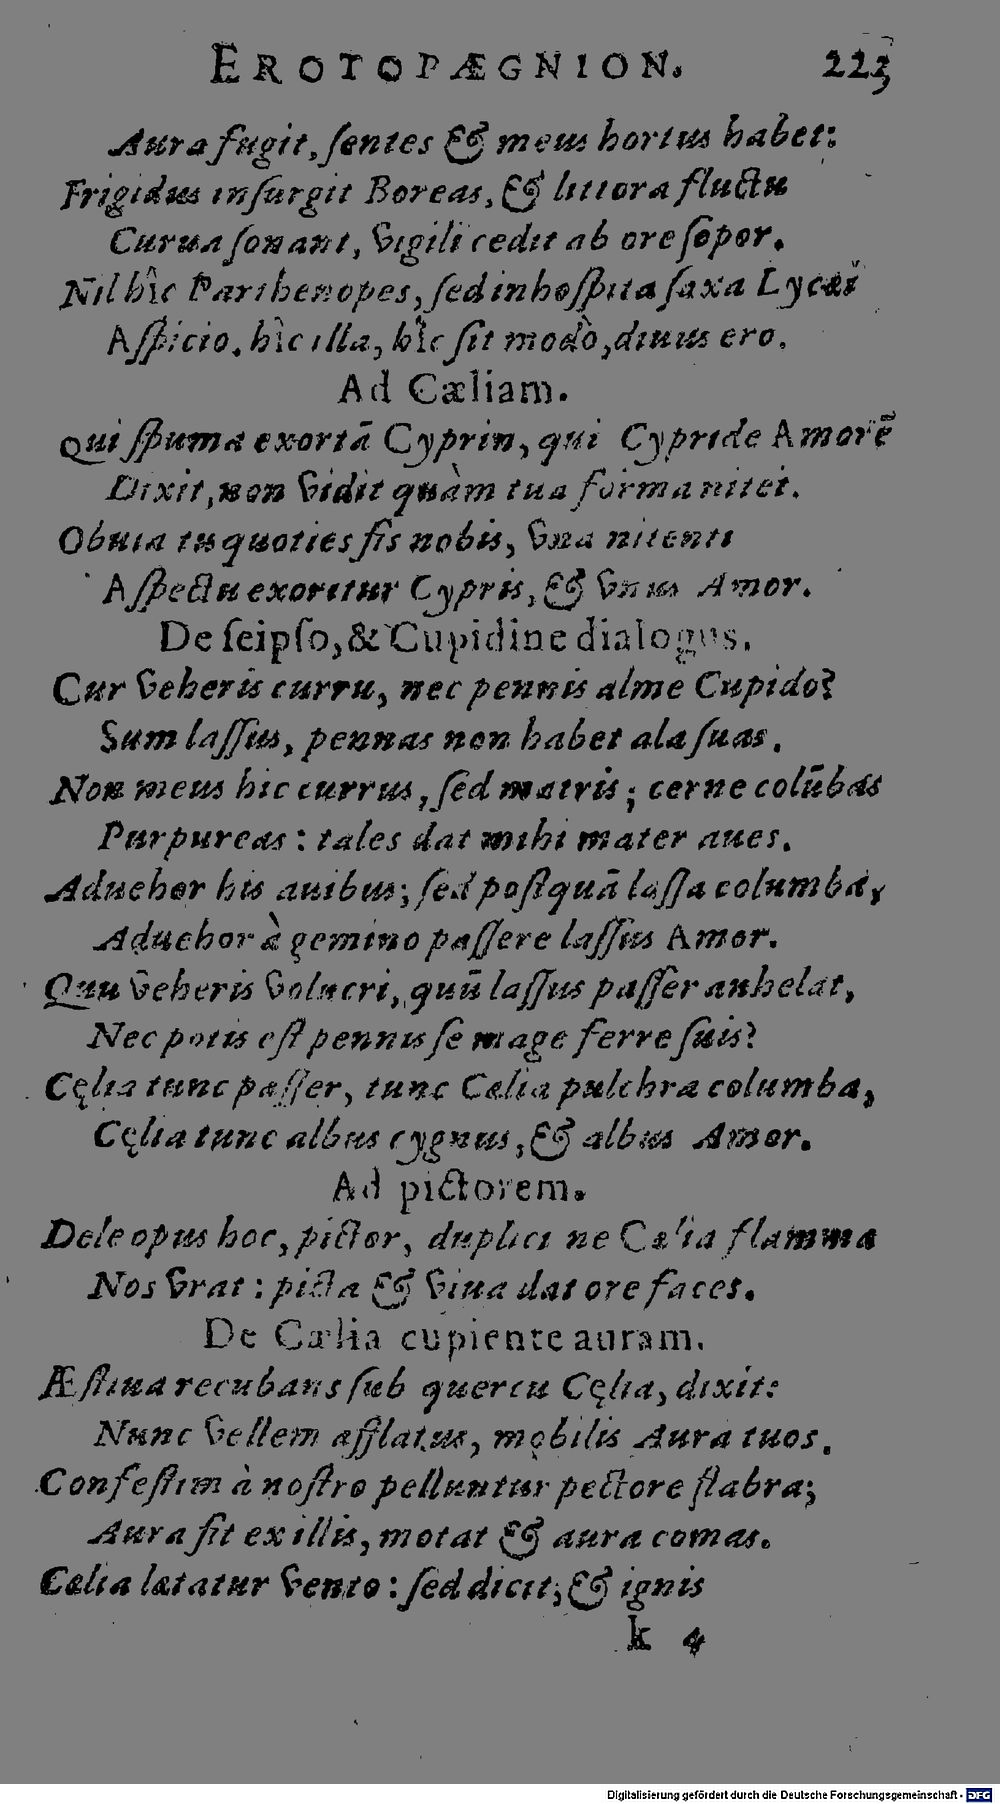 EROTOPÆGNION. 223
Aura fugit, ſentes & meus hortus habet:
Frigidus inſurgit Boreas, & littora fluctu
Curua ſonant, vigili cedit ab ore ſopor.
Nil hîc Parthenopes, ſed inhoſpita ſaxa Lycæi
Aſpicio. hìc illa, hîc ſit modò, diuus ero.
Ad Cæliam.
Qui ſpuma exortā Cyprin, qui Cypride Amorē
Dixit, non vidit quàm tua forma nitet.
Obuia tu quoties ſis nobis, vna nitenti
Aſpectu exoritur Cypris, & vnus Amor.
De ſeipſo, & Cupidine dialogus.
Cur veheris curru, nec pennis alme Cupido?
Sum laſſus, pennas non habet ala ſuas.
Non meus hic currus, ſed matris; cerne colūbas
Purpureas: tales dat mihi mater aues.
Aduehor his auibus; ſed poſtquā laſſa columba,
Aduehor à gemino paſſere laſſus Amor.
Quu veheris volucri, quū laſſus paſſer anhelat,
Nec potis eſt pennis ſe mage ferre ſuis?
Cęlia tunc paſſer, tunc Cælia pulchra columba,
Cęlia tunc albus cygnus, & albus Amor.
Ad pictorem.
Dele opus hoc, pictor, duplici ne Cælia flamma
Nos vrat: picta & viua dat ore faces.
De Cælia cupiente auram.
Æſtiua recubans ſub quercu Cęlia, dixit:
Nunc vellem afflatus, mobilis Aura tuos.
Confeſtim à noſtro pelluntur pectore flabra;
Aura fit ex illis, motat & aura comas.
Cælia lætatur vento: ſed dicit; & ignis
k 4
Digitalisierung gefördert durch die Deutsche Forschungsgemeinschaft - DFG